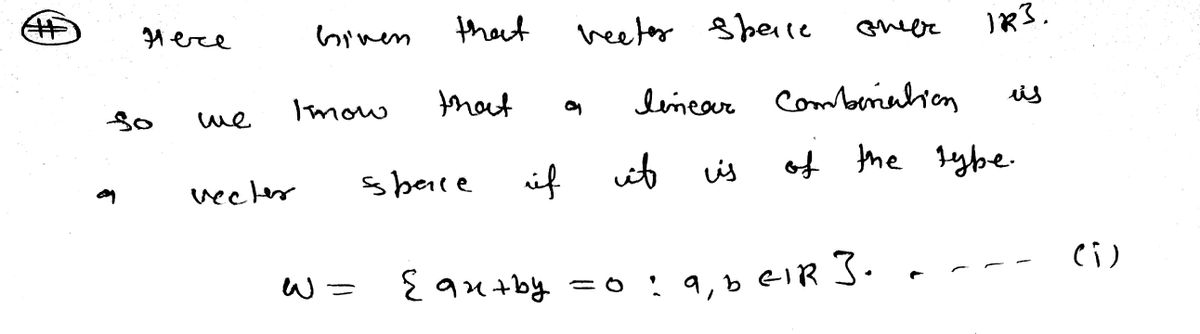 # Here Given that vector space over IR³.
so we know that a linear combination is
a vector space if it is of the type.
W = { ax+by = 0 : a, b ∈ IR }. - - - - (i)